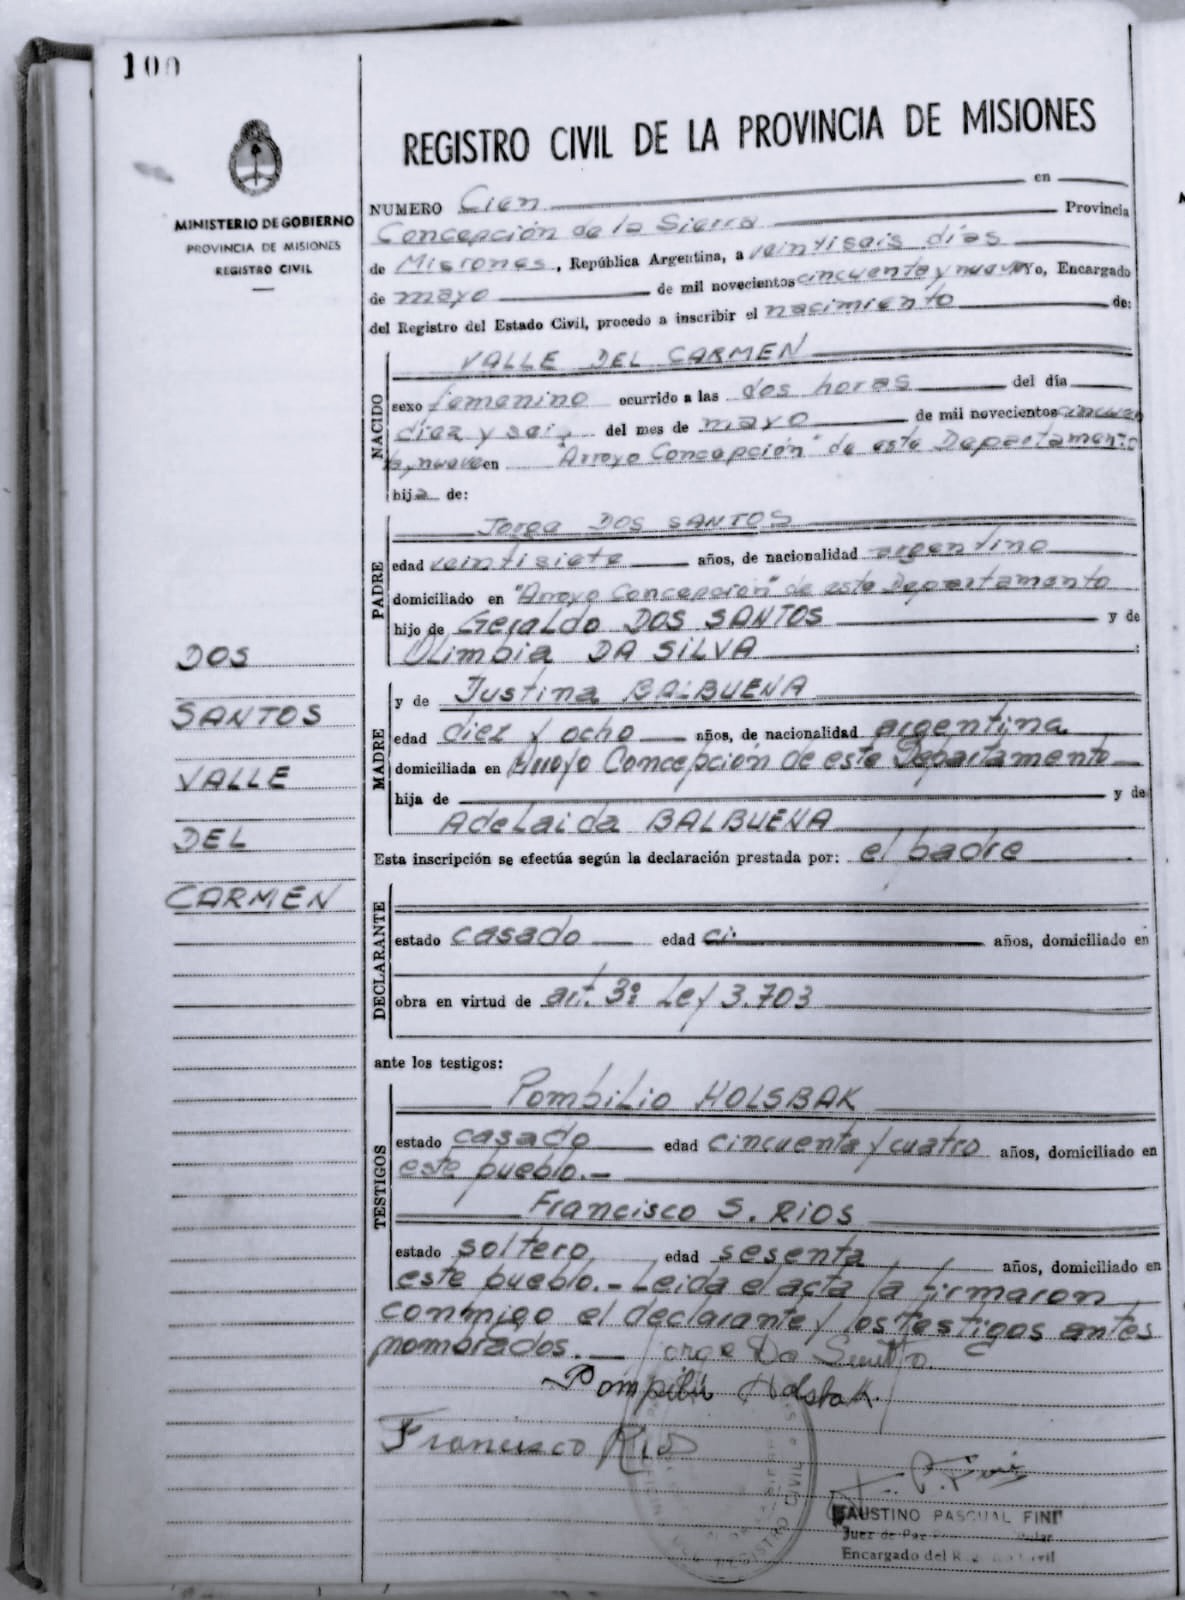 100
MINISTERIO DE GOBIERNO
PROVINCIA DE MISIONES
REGISTRO CIVIL
REGISTRO CIVIL DE LA PROVINCIA DE MISIONES
NUMERO Cien en
Concepción de la Sierra Provincia
de Misiones, República Argentina, a veintiseis días
de mayo de mil novecientos cincuenta y nueve Yo, Encargado
del Registro del Estado Civil, procedo a inscribir el nacimiento de:
NACIDO
VALLE DEL CARMEN
sexo femenino ocurrido a las dos horas del día
diez y seis del mes de mayo de mil novecientos cincuen
ta y nueve en "Arroyo Concepción" de este Departamento
hija de:
PADRE
Jorge DOS SANTOS
edad veintisiete años, de nacionalidad argentino
domiciliado en "Arroyo Concepción" de este Departamento
hijo de Geraldo DOS SANTOS y de
Olimbia DA SILVA
MADRE
y de Justina BALBUENA
edad diez y ocho años, de nacionalidad argentina
domiciliada en Arroyo Concepción de este Departamento
hija de y de
Adelaida BALBUENA
Esta inscripción se efectúa según la declaración prestada por: el padre
DECLARANTE
estado casado edad años, domiciliado en
obra en virtud de art. 3º Ley 3.703
ante los testigos:
TESTIGOS
Pombilio HOLSBAK
estado casado edad cincuenta y cuatro años, domiciliado en
este pueblo.-
Francisco S. RIOS
estado soltero edad sesenta años, domiciliado en
este pueblo.- Leida el acta la firmaron
conmigo el declarante y los testigos antes
nombrados.- Jorge Do
Pompilio Holsbak.
Francisco Rios
FAUSTINO PASCUAL FINI
Juez de Paz
Encargado del Registro Civil
DOS
SANTOS
VALLE
DEL
CARMEN